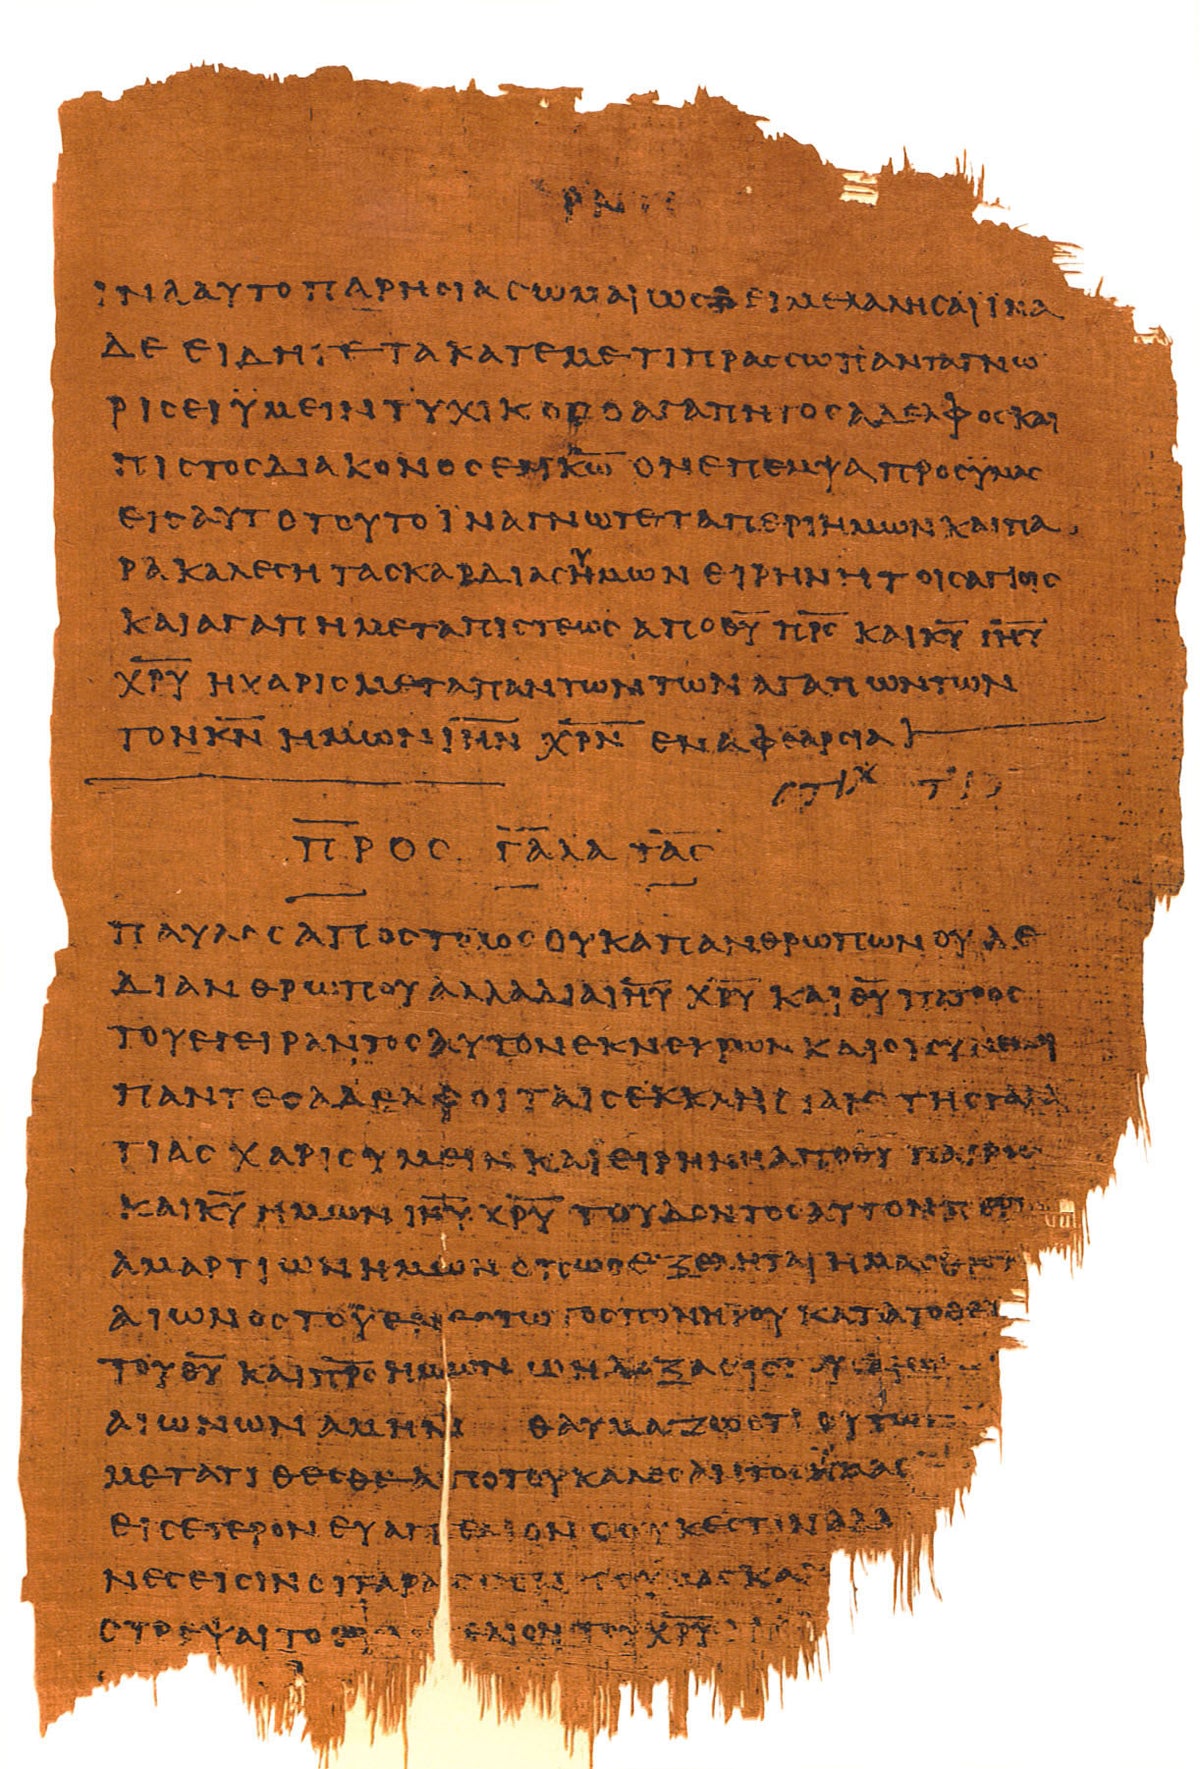 ΡΝ
ΙΝΑ ΑΥΤΟ ΠΑΡΗΣΙΑΣΩΜΑΙ ΩΣ ΔΕΙ ΜΕ ΛΑΛΗΣΑΙ ΪΝΑ
ΔΕ ΕΙΔΗΤΕ ΤΑ ΚΑΤ ΕΜΕ ΤΙ ΠΡΑΣΣΩ ΠΑΝΤΑ ΓΝΩ
ΡΙΣΕΙ ΫΜΕΙΝ ΤΥΧΙΚΟΣ Ο ΑΓΑΠΗΤΟΣ ΑΔΕΛΦΟΣ ΚΑΙ
ΠΙΣΤΟΣ ΔΙΑΚΟΝΟΣ ΕΝ Κ̅Ω̅ ΟΝ ΕΠΕΜΨΑ ΠΡΟΣ ΫΜΑΣ
ΕΙΣ ΑΥΤΟ ΤΟΥΤΟ ΪΝΑ ΓΝΩΤΕ ΤΑ ΠΕΡΙ ΗΜΩΝ ΚΑΙ ΠΑ
ΡΑΚΑΛΕΣΗ ΤΑΣ ΚΑΡΔΙΑΣ ΗΜΩΝ ΕΙΡΗΝΗ ΤΟΙΣ ΑΓΙΟΙΣ
ΚΑΙ ΑΓΑΠΗ ΜΕΤΑ ΠΙΣΤΕΩΣ ΑΠΟ Θ̅Υ̅ Π̅Ρ̅Σ̅ ΚΑΙ Κ̅Υ̅ Ι̅Η̅Υ̅
Χ̅Ρ̅Υ̅ Η ΧΑΡΙΣ ΜΕΤΑ ΠΑΝΤΩΝ ΤΩΝ ΑΓΑΠΩΝΤΩΝ
ΤΟΝ Κ̅Ν̅ ΗΜΩΝ Ι̅Η̅Ν̅ Χ̅Ρ̅Ν̅ ΕΝ ΑΦΘΑΡΣΙΑ
ΣΤΙΧ
ΠΡΟΣ ΓΑΛΑΤΑΣ
ΠΑΥΛΟΣ ΑΠΟΣΤΟΛΟΣ ΟΥΚ ΑΠ ΑΝΘΡΩΠΩΝ ΟΥΔΕ
ΔΙ ΑΝΘΡΩΠΟΥ ΑΛΛΑ ΔΙΑ Ι̅Η̅Υ̅ Χ̅Ρ̅Υ̅ ΚΑΙ Θ̅Υ̅ ΠΑΤΡΟΣ
ΤΟΥ ΕΓΕΙΡΑΝΤΟΣ ΑΥΤΟΝ ΕΚ ΝΕΚΡΩΝ ΚΑΙ ΟΙ ΣΥΝ ΕΜΟΙ
ΠΑΝΤΕΣ ΑΔΕΛΦΟΙ ΤΑΙΣ ΕΚΚΛΗΣΙΑΙΣ ΤΗΣ ΓΑΛΑ
ΤΙΑΣ ΧΑΡΙΣ ΥΜΕΙΝ ΚΑΙ ΕΙΡΗΝΗ ΑΠΟ Θ̅Υ̅ ΠΑΤΡΟΣ
ΚΑΙ Κ̅Υ̅ ΗΜΩΝ Ι̅Η̅Υ̅ Χ̅Ρ̅Υ̅ ΤΟΥ ΔΟΝΤΟΣ ΑΥΤΟΝ ΠΕΡΙ
ΑΜΑΡΤΙΩΝ ΗΜΩΝ ΟΠΩΣ ΕΞΕΛΗΤΑΙ ΗΜΑΣ ΕΚ ΤΟΥ
ΑΙΩΝΟΣ ΤΟΥ ΕΝΕΣΤΩΤΟΣ ΠΟΝΗΡΟΥ ΚΑΤΑ ΤΟ ΘΕΛ
ΤΟΥ Θ̅Υ̅ ΚΑΙ Π̅Ρ̅Σ̅ ΗΜΩΝ Ω Η ΔΟΞΑ ΕΙΣ
ΑΙΩΝΩΝ ΑΜΗΝ ΘΑΥΜΑΖΩ ΟΤΙ ΟΥΤΩΣ
ΜΕΤΑΤΙΘΕΣΘΕ ΑΠΟ ΤΟΥ ΚΑΛΕΣΑΝΤΟΣ ΫΜΑΣ
ΕΙΣ ΕΤΕΡΟΝ ΕΥΑΓΓΕΛΙΟΝ Ο ΟΥΚ ΕΣΤΙΝ ΑΛΛ
ΝΕΣ ΕΙΣΙΝ ΟΙ ΤΑΡΑΣΣΟΝΤΕΣ ΥΜΑΣ ΚΑΙ
ΣΤΡΕΨΑΙ ΤΟ ΕΛΙΟΝ ΤΟΥ Χ̅Ρ̅Υ̅